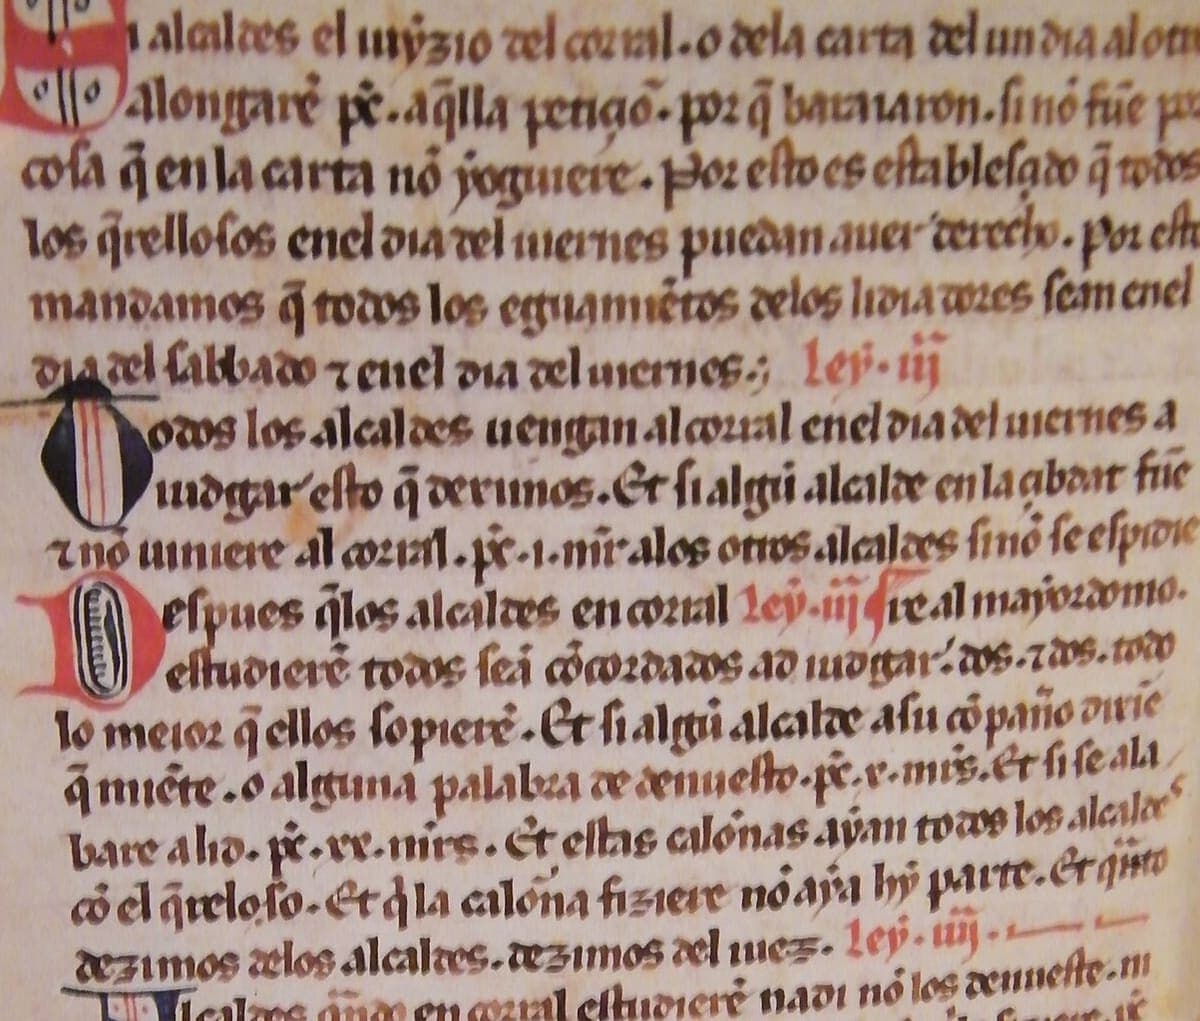 i alcaldes el iuyzio del corral. o dela carta del un dia al otr
alongarẽ pẽ. aq̃lla petiçõ. por q̃ baraiaron. si nõ fũe po
cosa q̃ en la carta nõ yoguiere. Por esto es establesçido q̃ todos
los q̃rellosos enel dia del uiernes puedan auer derecho. Por esto
mandamos q̃ todos los eguamiẽtos delos lidiadores sean enel
dia del sabbado ⁊ enel dia del uiernes.; Ley. iij
Todos los alcaldes uengan al corral enel dia del uiernes a
iudgar esto q̃ deximos. Et si algũ alcalde en la çibdat fũe
⁊ nõ uiniere al corral. pẽ. i. mr̃ a los otros alcaldes si nõ se espidie
Despues q̃ los alcaldes en corral Ley. iij re al mayordomo.
estudierẽ todos seã cõcordados ad iudgar. dos. ⁊ dos. todo
lo meior q̃ ellos sopierẽ. Et si algũ alcalde a su cõpañõ dixiẽ
q̃ miẽte. o alguna palabra de denuesto. pẽ. x. mr̃s. Et si se ala
bare a lid. pẽ. xx. mr̃s. Et estas calõnas ayan todos los alcaldes
cõ el q̃reloso. Et q̃ la calõna fiziere nõ aya hy parte. Et q̃nto
dezimos delos alcaldes. dezimos del iuez. Ley. iiij.
Alcaldes q̃ndo en corral estudierẽ nadi nõ los denueste. ni